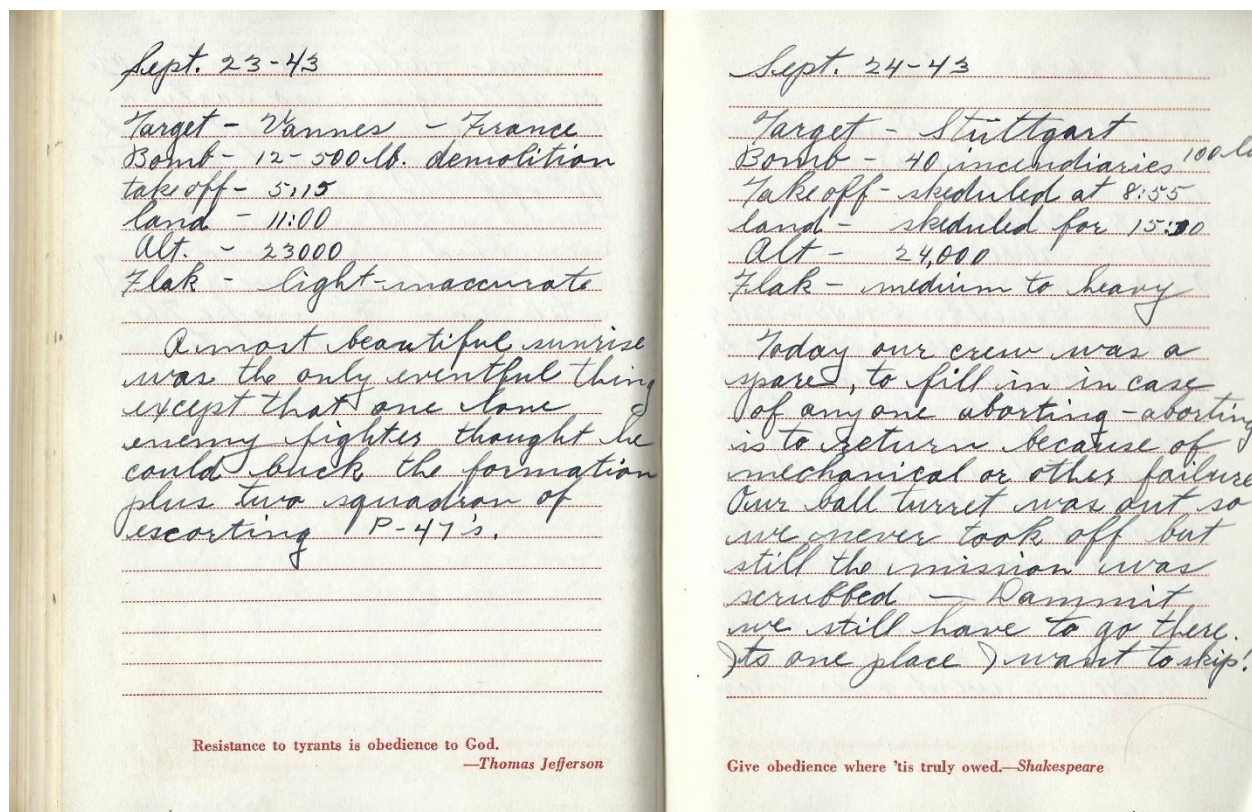 Sept. 23-43
Target - Vannes - France
Bomb - 12-500 lb. demolition
takeoff - 5:15
land - 11:00
Alt. - 23000
Flak - light-inaccurate
A most beautiful sunrise
was the only eventful thing
except that one lone
enemy fighter thought he
could buck the formation
plus two squadron of
escorting P-47's.
Resistance to tyrants is obedience to God.
—Thomas Jefferson
Sept. 24-43
Target - Stuttgart
Bomb - 40 incendiaries 100 lb
Takeoff - skeduled at 8:55
land - skeduled for 15:00
Alt - 24,000
Flak - medium to heavy
Today our crew was a
spare, to fill in in case
of anyone aborting - aborting
is to return because of
mechanical or other failure
Our ball turret was out so
we never took off but
still the mission was
scrubbed — Dammit
we still have to go there.
Its one place I want to skip!
Give obedience where 'tis truly owed.—Shakespeare